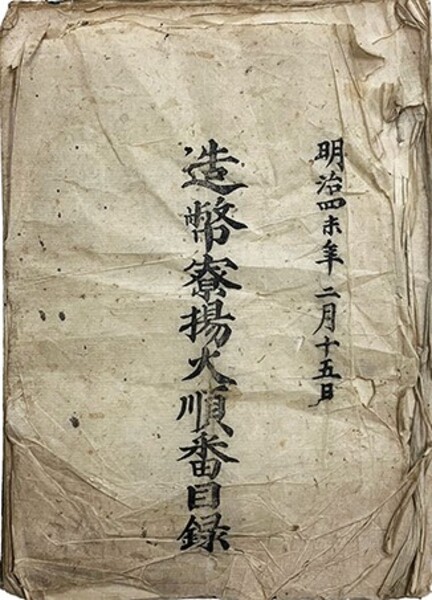 明治四未年二月十五日
造幣寮揚火順番目録